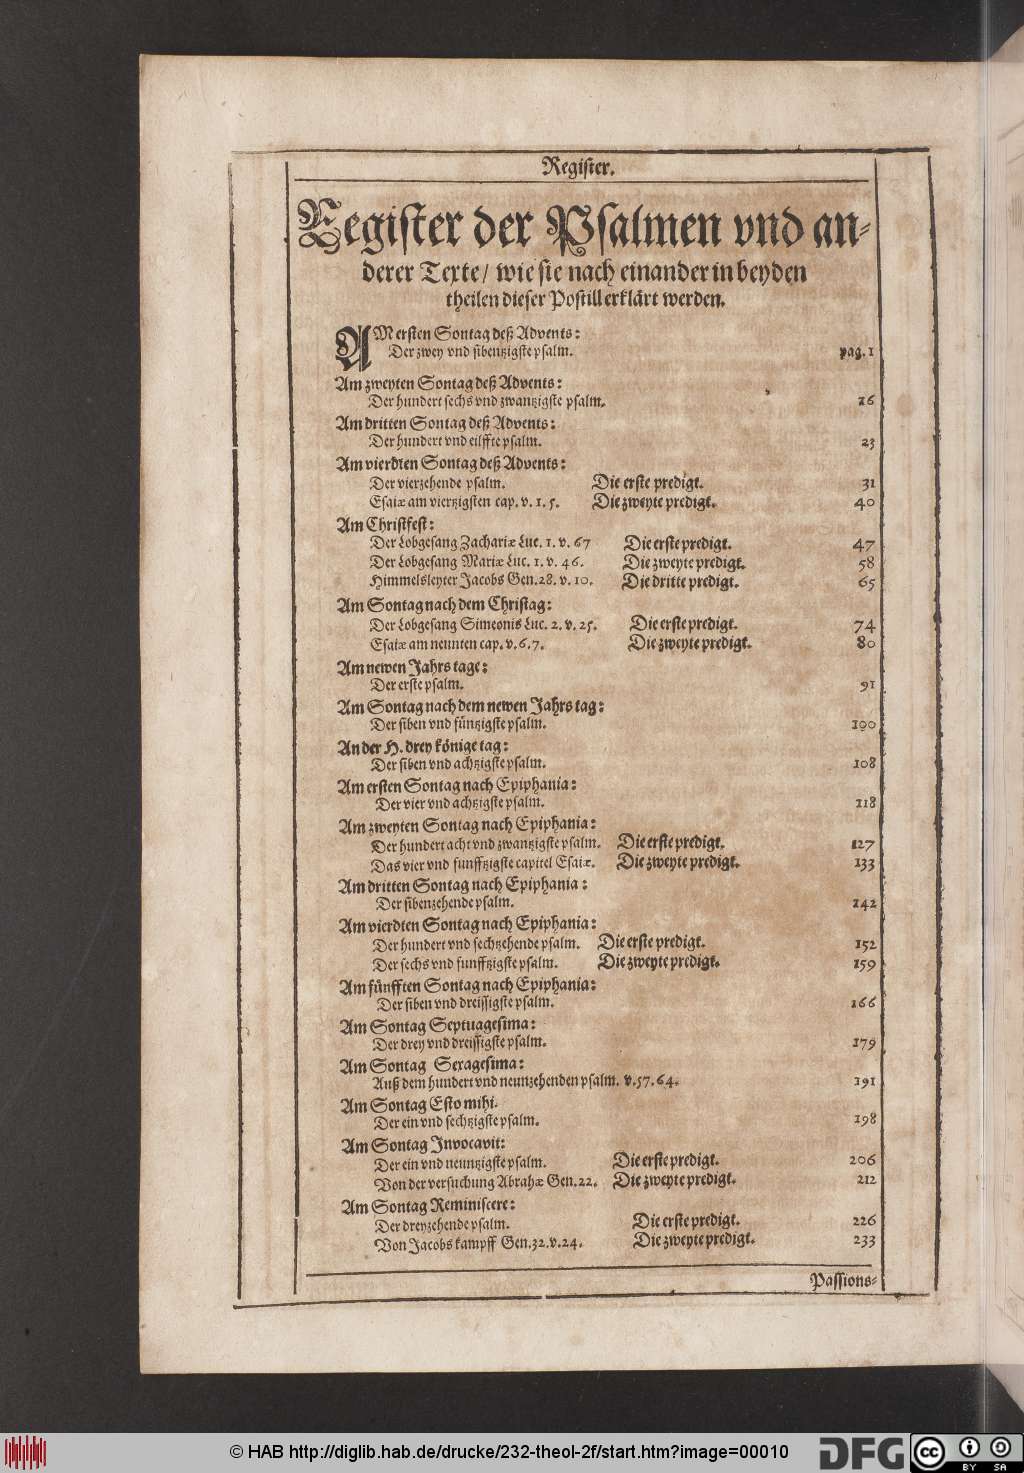 Register.
Register der Psalmen vnd an-
derer Texte/ wie sie nach einander in beyden
theilen dieser Postill erklärt werden.
AM ersten Sontag deß Advents:
Der zwey vnd sibentzigste psalm. pag. 1
Am zweyten Sontag deß Advents:
Der hundert sechs vnd zwantzigste psalm. 16
Am dritten Sontag deß Advents:
Der hundert vnd eilffte psalm. 23
Am vierdten Sontag deß Advents:
Der vierzehende psalm. Die erste predigt. 31
Esaiæ am viertzigsten cap. v. 1. 5. Die zweyte predigt. 40
Am Christfest:
Der Lobgesang Zachariæ Luc. 1. v. 67 Die erste predigt. 47
Der Lobgesang Mariæ Luc. 1. v. 46. Die zweyte predigt. 58
Himmelsleyter Jacobs Gen. 28. v. 10. Die dritte predigt. 65
Am Sontag nach dem Christag:
Der Lobgesang Simeonis Luc. 2. v. 25. Die erste predigt. 74
Esaiæ am neunten cap. v. 6. 7. Die zweyte predigt. 80
Am newen Jahrs tage:
Der erste psalm. 91
Am Sontag nach dem newen Jahrs tag:
Der siben vnd füntzigste psalm. 100
An der H. drey könige tag:
Der siben vnd achtzigste psalm. 108
Am ersten Sontag nach Epiphania:
Der vier vnd achtzigste psalm. 118
Am zweyten Sontag nach Epiphania:
Der hundert acht vnd zwantzigste psalm. Die erste predigt. 127
Das vier vnd funfftzigste capitel Esaiæ. Die zweyte predigt. 133
Am dritten Sontag nach Epiphania:
Der sibenzehende psalm. 142
Am vierdten Sontag nach Epiphania:
Der hundert vnd sechtzehende psalm. Die erste predigt. 152
Der sechs vnd funfftzigste psalm. Die zweyte predigt. 159
Am fünfften Sontag nach Epiphania:
Der siben vnd dreissigste psalm. 166
Am Sontag Septuagesima:
Der drey vnd dreissigste psalm. 179
Am Sontag Sexagesima:
Auß dem hundert vnd neunzehenden psalm. v. 57. 64. 191
Am Sontag Esto mihi.
Der ein vnd sechtzigste psalm. 198
Am Sontag Invocavit:
Der ein vnd neuntzigste psalm. Die erste predigt. 206
Von der versuchung Abrahæ Gen. 22. Die zweyte predigt. 212
Am Sontag Reminiscere:
Der dreyzehende psalm. Die erste predigt. 226
Von Jacobs kampff Gen. 32. v. 24. Die zweyte predigt. 233
Passions-
© HAB http://diglib.hab.de/drucke/232-theol-2f/start.htm?image=00010
DFG
cc BY SA